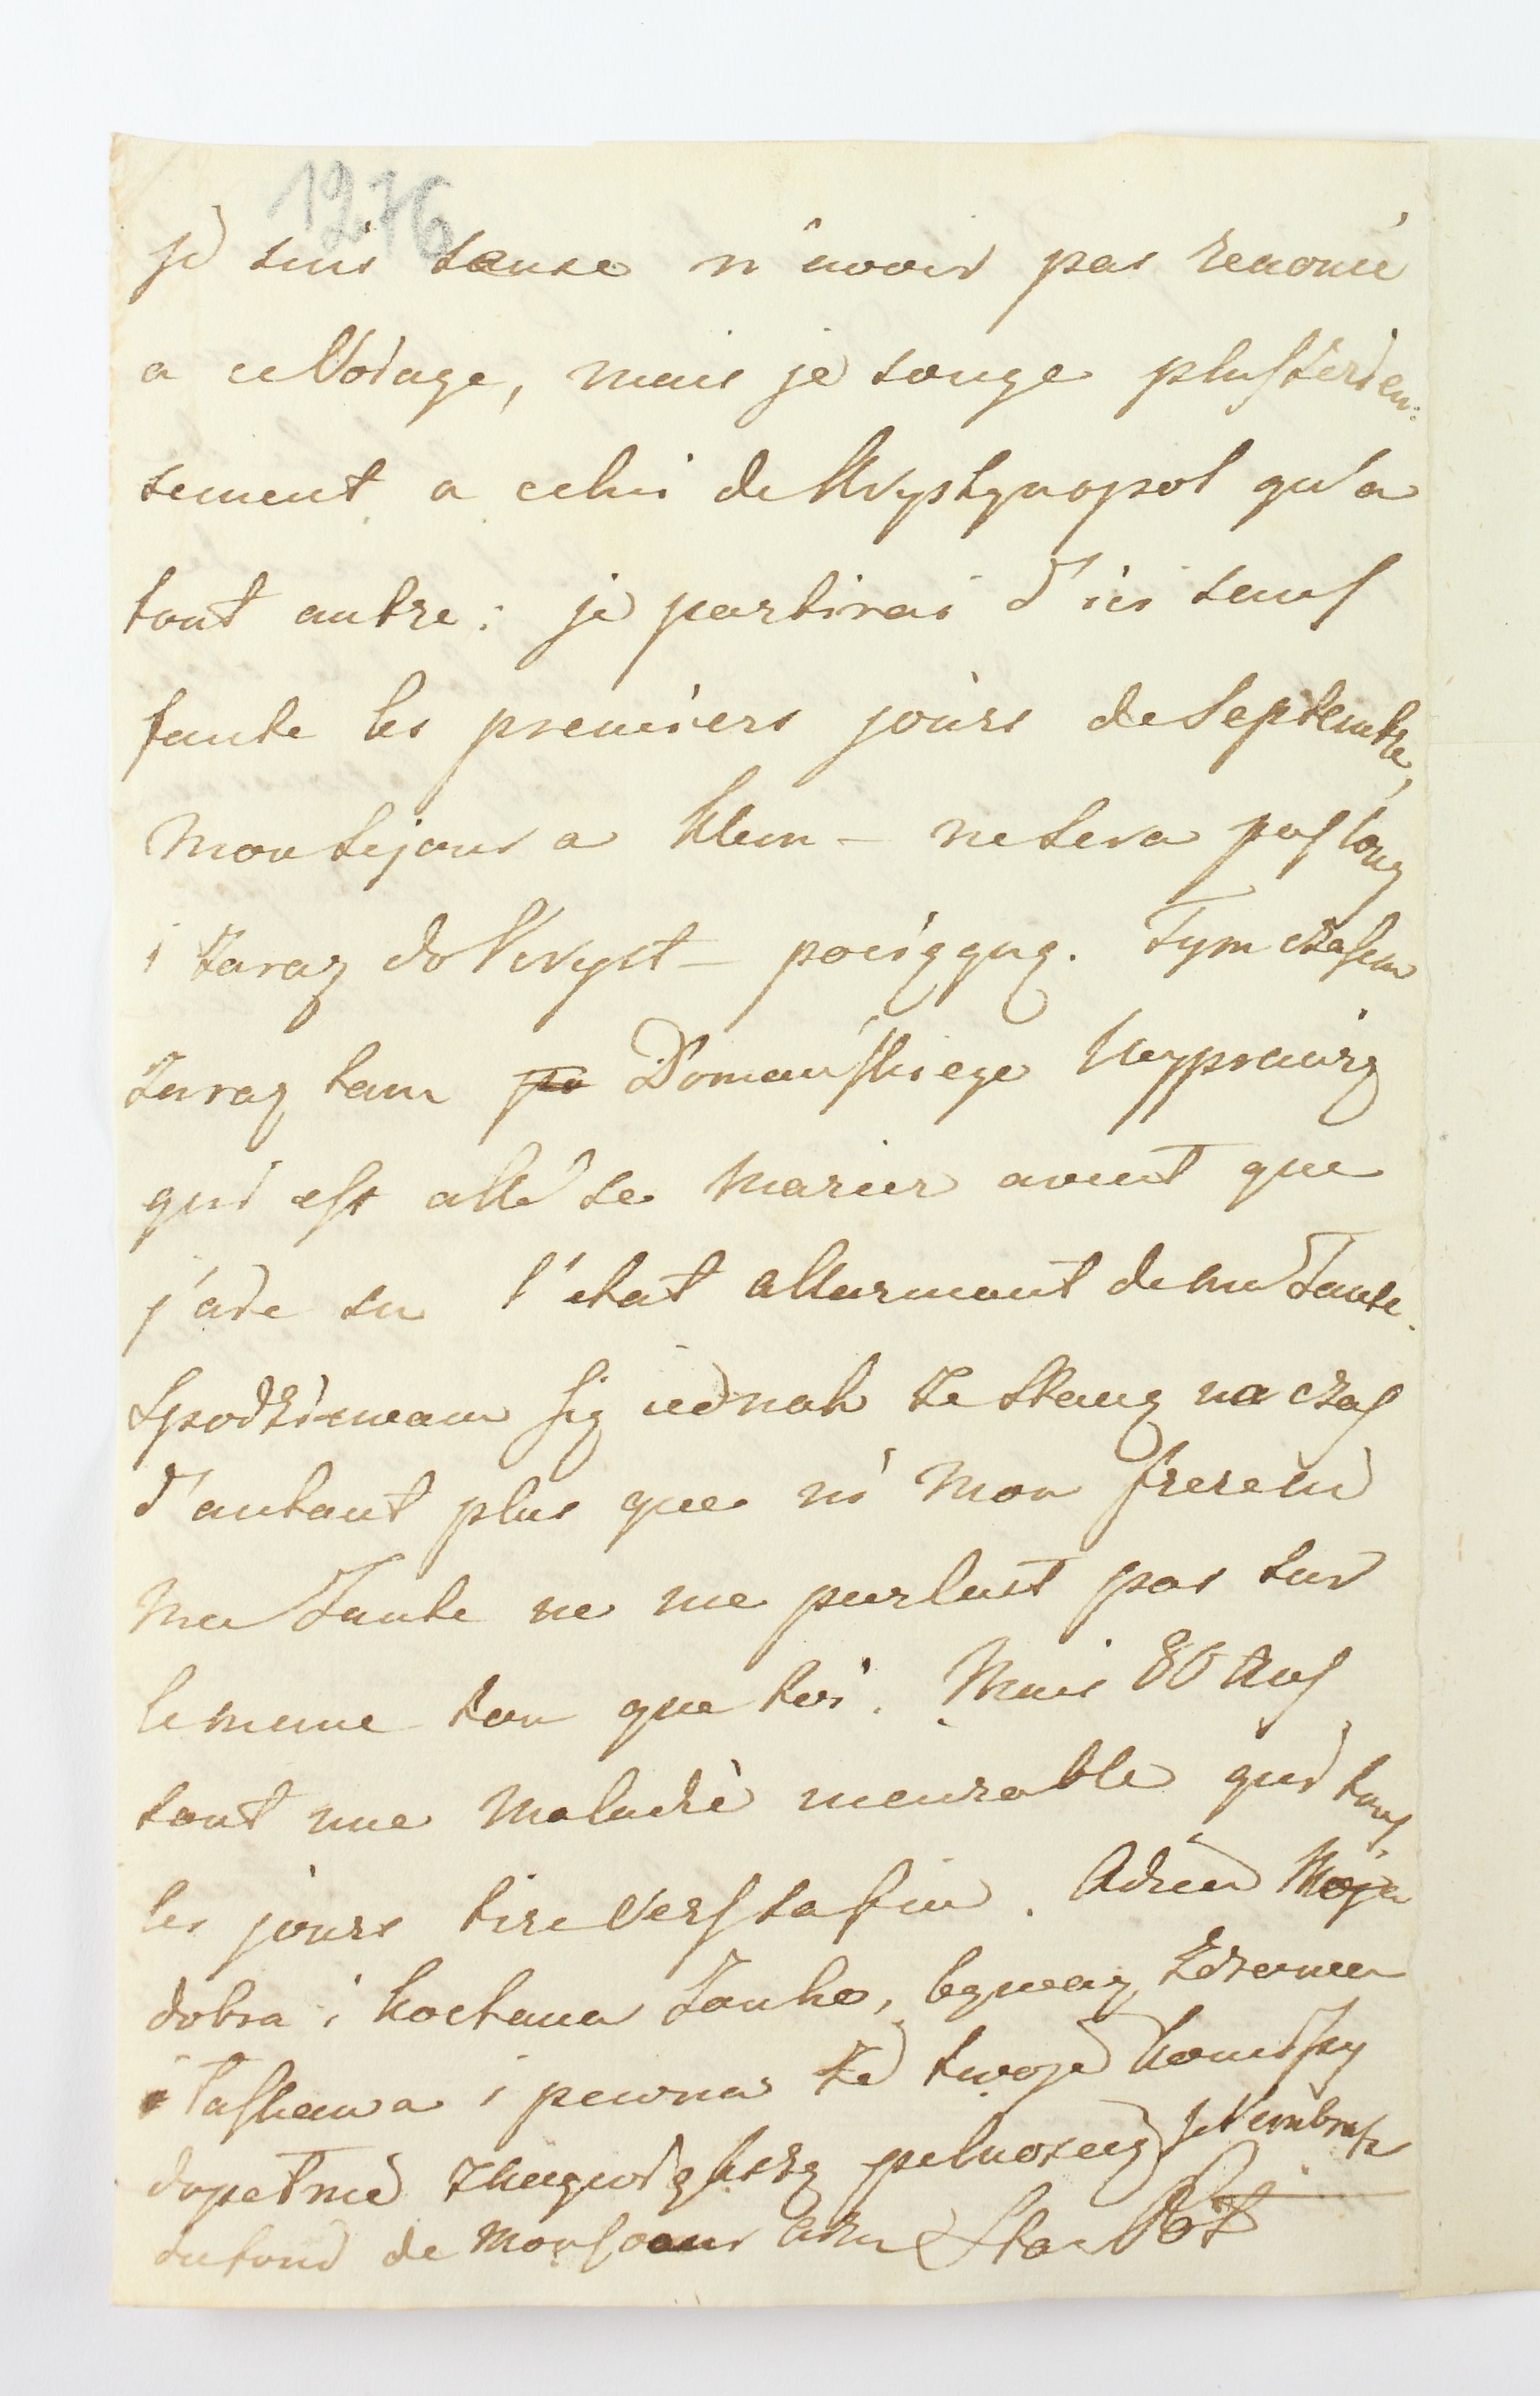 1276
je suis sense n'avoir pas renoncé
a ce Voiage, mais je songe plus serieu:
sement a celui de Krystynopol qu'a
tout autre: je partirai d'ici sauf
faute les premiers jours de Septembre,
mon sejour a Klem – ne sera pas long
i zaraz do Kryst – pociągnę. Tym czasem
zaraz tam po Domańskiego wyprawię
qui est allé se marier avant que
j'aie su l'etat allarmant de ma Tante.
Spodziewam się iednak że stanę na czas
d'autant plus que ni mon frere ni
ma Tante ne me parlait pas sur
le meme ton que toi. Mais 80 Ans
sont une maladie incurable qui tous
les jours tire Vers sa fin. Adieu Moja
dobra i kochana Zonko, bywaj zdrowa
i łaskawa i pewna że twoje
dopełnię z je t'embrasse
du fond de mon coeur Adieu Sta Pot